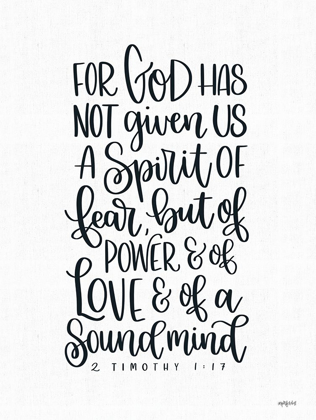 FOR GOD HAS
NOT given US
A Spirit OF
fear, but of
POWER & of
LOVE & of a
Sound mind
2 TIMOTHY 1:17